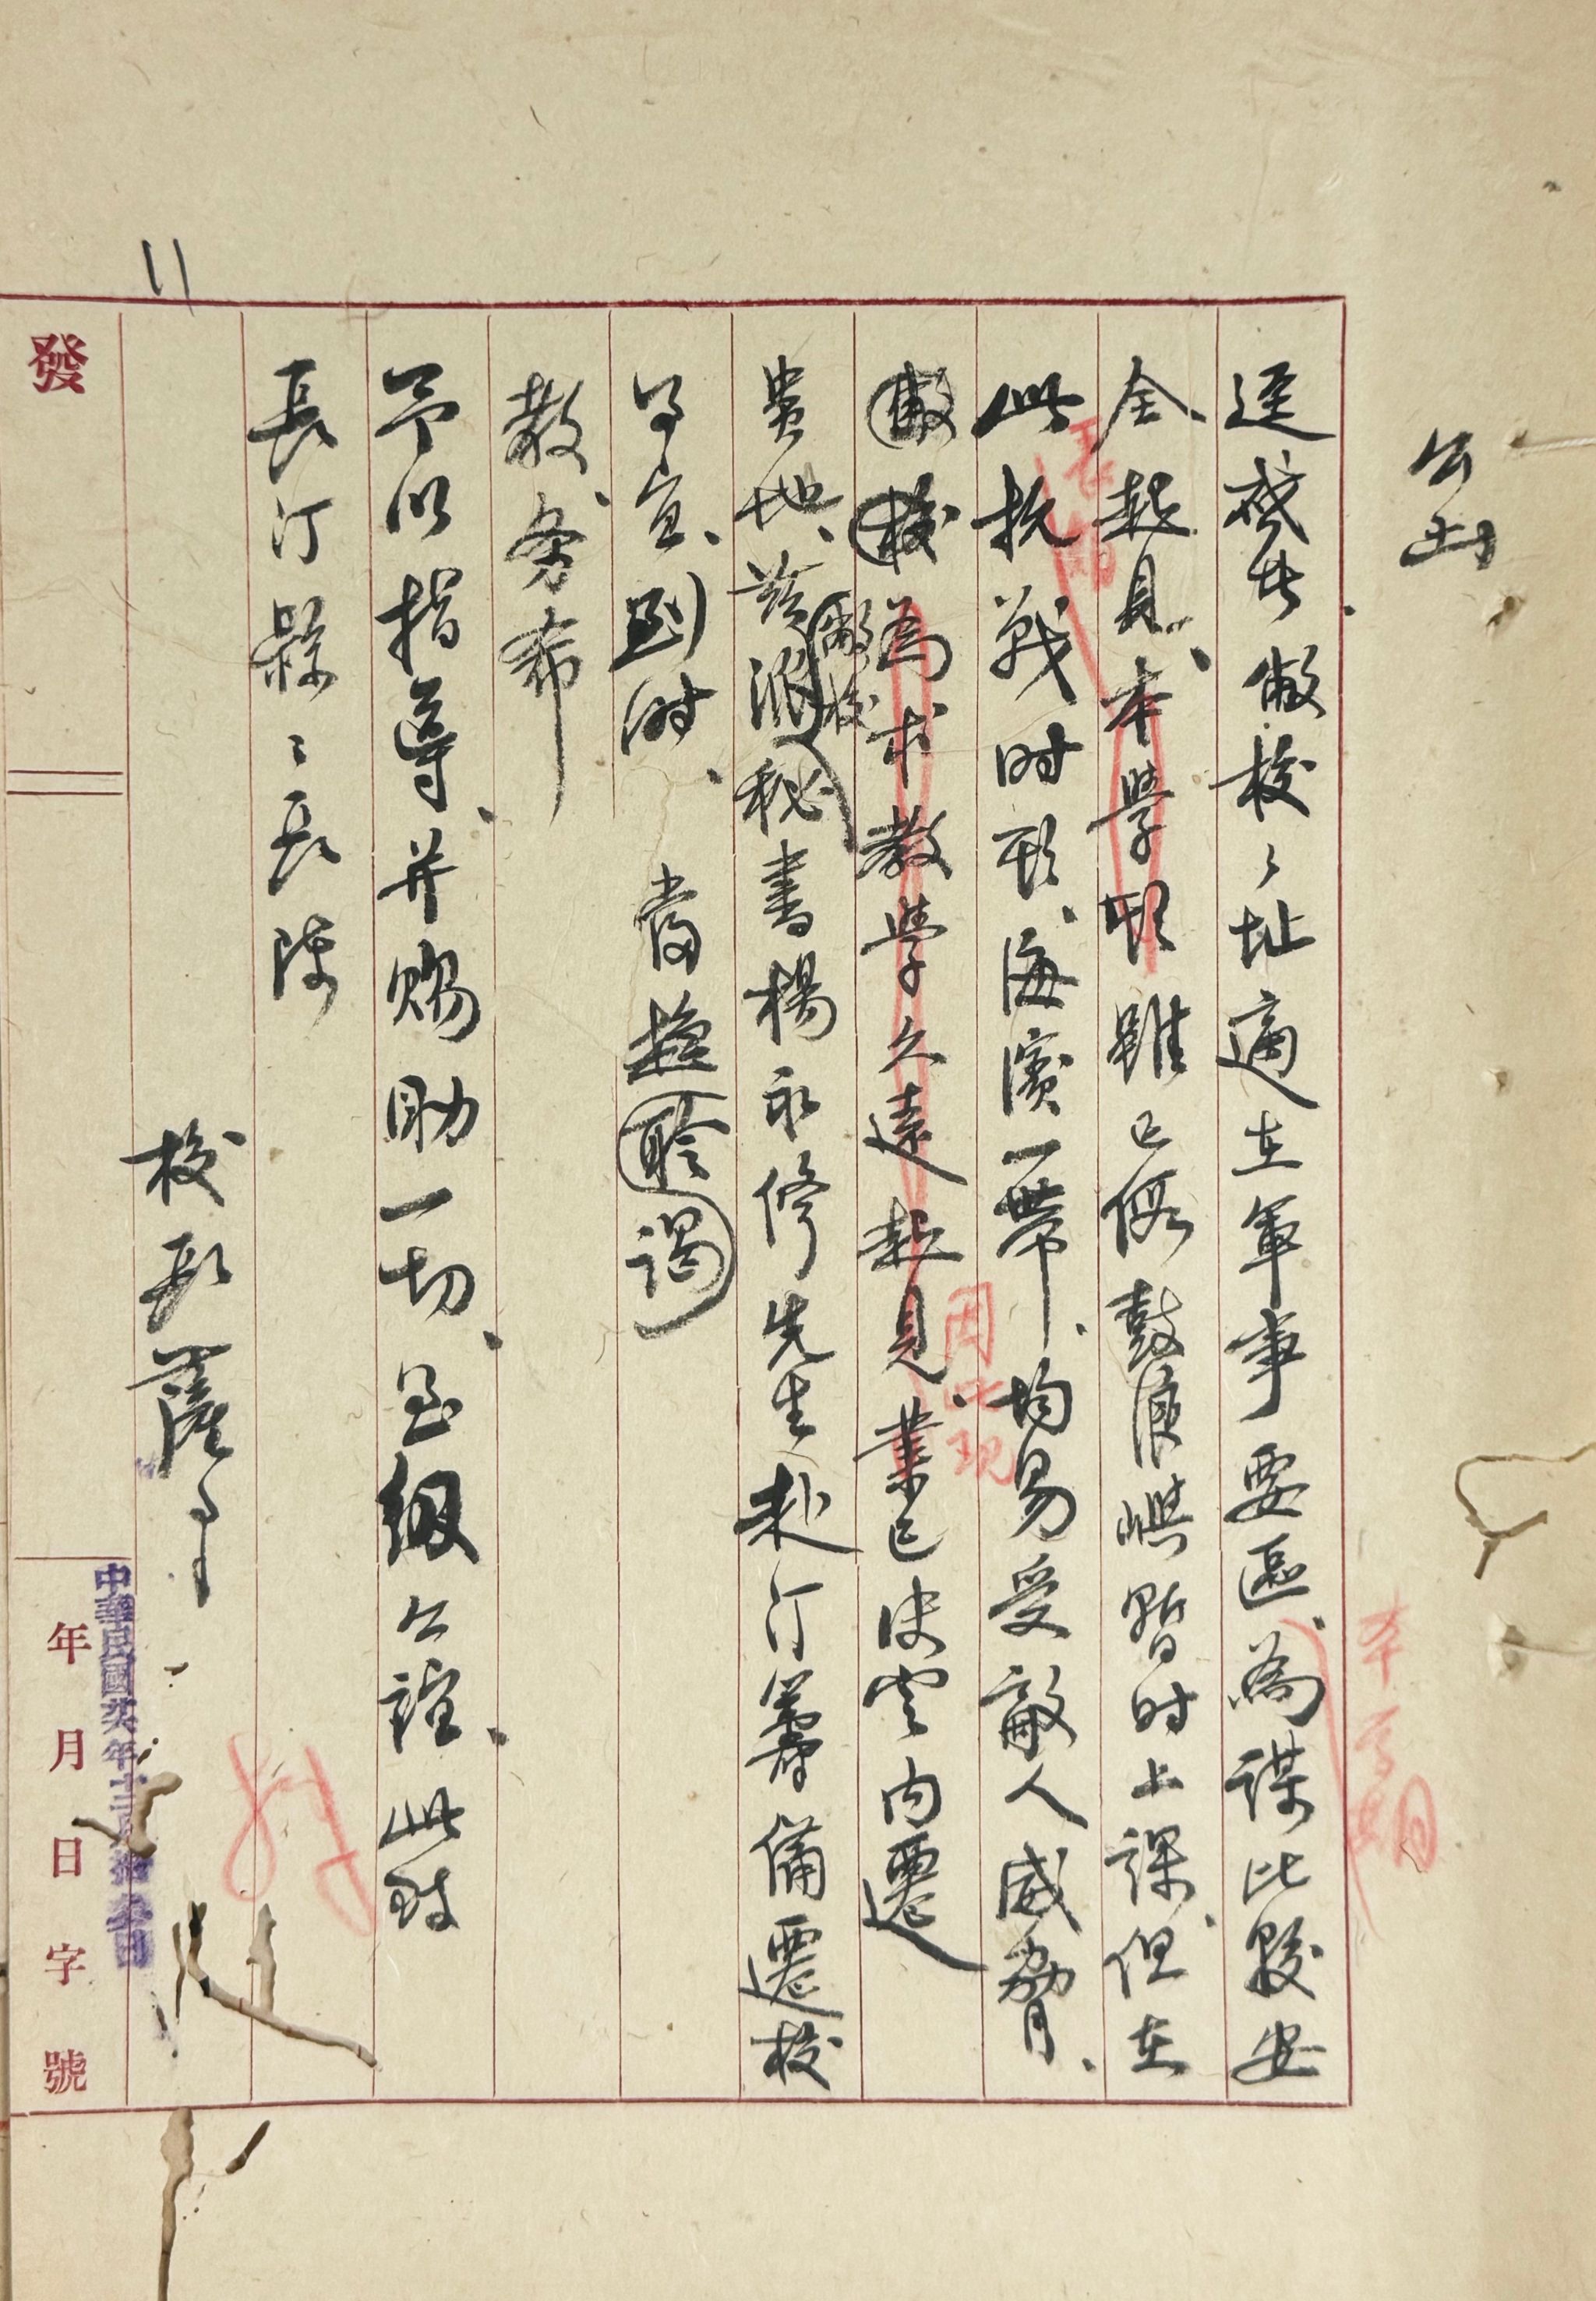 公函
逕啓者、敝校々址適在軍事要區、為謀比較安
本學期
全起見、本學期雖已假鼓浪嶼暫時上課、但在
長期
此抗戰时期、海濱一帶、均易受敵人威脅、
因此現
敝校為求教學久遠起見、業已決定内遷
敝校
貴地、茲派秘書楊永修先生赴汀籌備遷校
事宜、到时、當趨聆謁
教、务希
予以指導、并賜助一切、至紉公誼、此致
長汀縣々長陳
校長薩
發
年月日字號
中華民國廿六年十二月
11